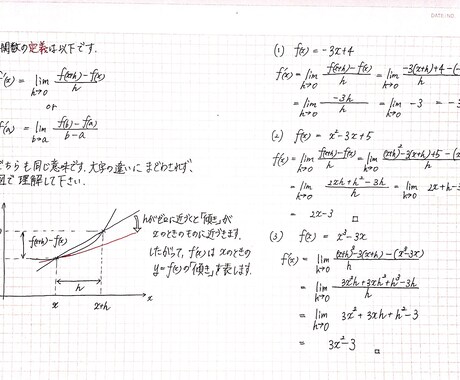 DATE: NO
関数の定義は以下です.
f'(x) = lim h→0 f(x+h)-f(x) / h
or
f'(a) = lim b→a f(b)-f(a) / b-a
どちらも同じ意味です. 文字の違いに まどわされず,
図で 理解して下さい.
f(x+h)-f(x)
h
x
x+h
x
hがゼロに近づくと「傾き」が
xのときのものに近づきます.
したがって, f'(x) は xのときの
y=f(x)の「傾き」を表します.
(1) f(x) = -3x+4
f'(x) = lim h→0 f(x+h)-f(x) / h = lim h→0 -3(x+h)+4-(-
= lim h→0 -3h / h = lim h→0 -3 = -
(2) f(x) = x²-3x+5
f'(x) = lim h→0 f(x+h)-f(x) / h = lim h→0 (x+h)²-3(x+h)+5-(x
= lim h→0 2xh+h²-3h / h = lim h→0 2x+h-
= 2x-3 □
(3) f(x) = x³-3x
f'(x) = lim h→0 (x+h)³-3(x+h)-(x³-3x) / h
= lim h→0 3x²h+3xh²+h³-3h / h
= lim h→0 3x²+3xh+h²-3
= 3x²-3 □